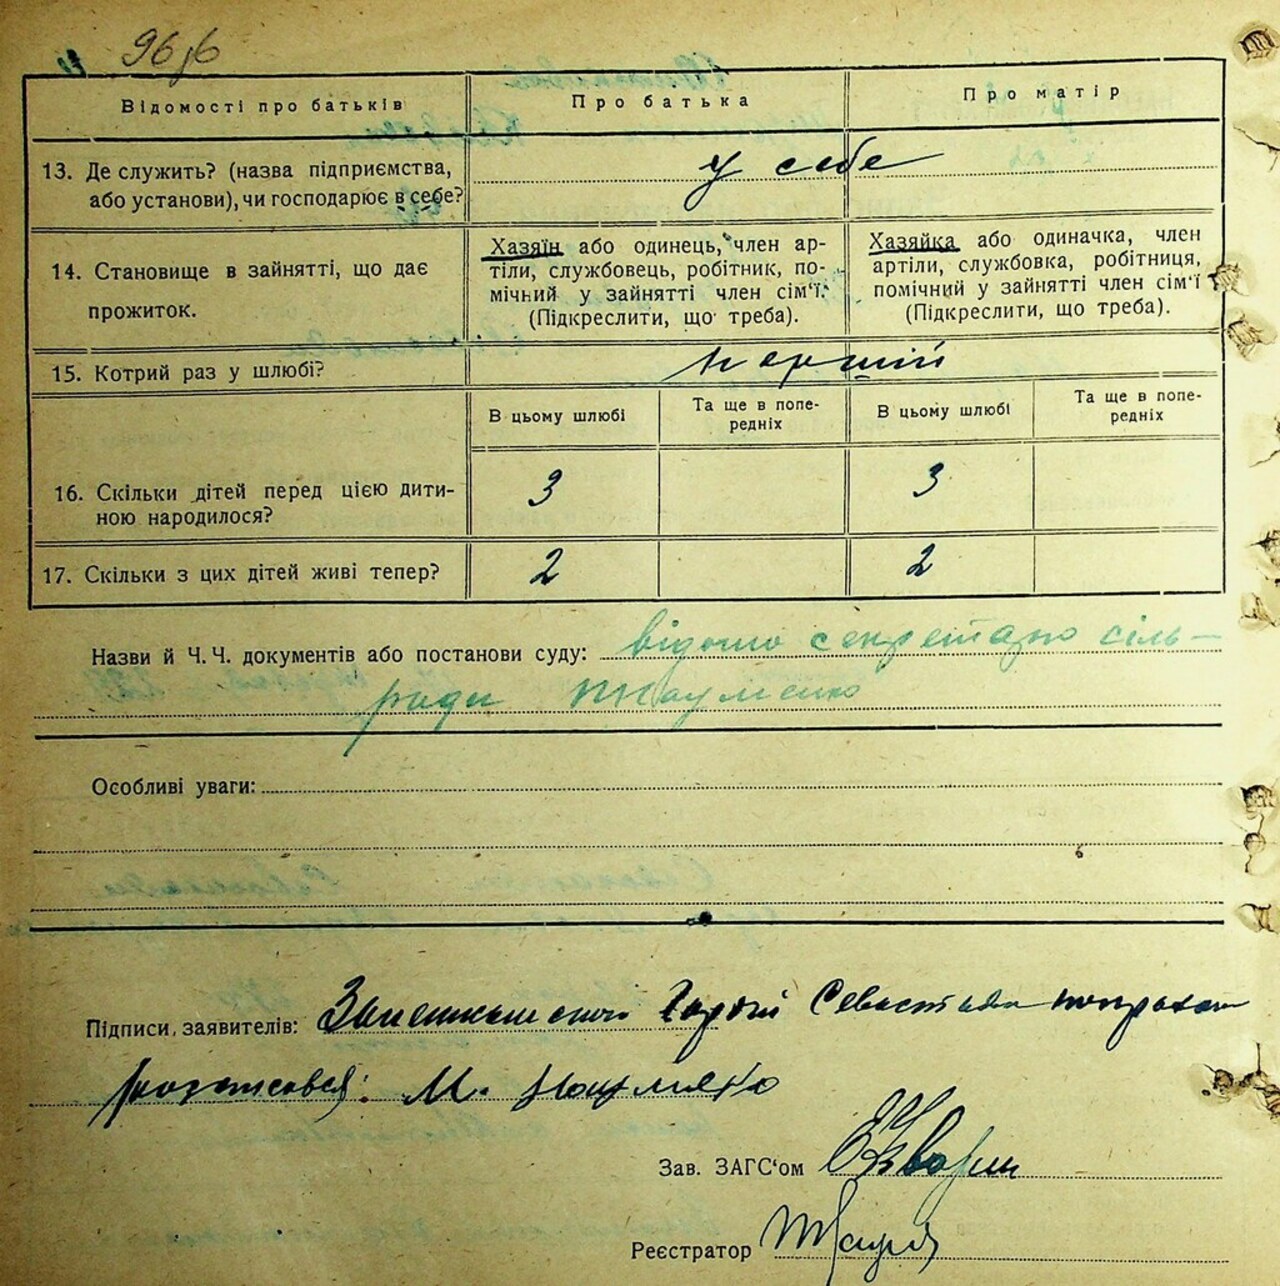 Відомості про батьків
Про батька
Про матір
13. Де служить? (назва підприємства,
або установи), чи господарює в себе?
у себе
14. Становище в зайнятті, що дає
прожиток.
Хазяїн або одинець, член ар-
тіли, службовець, робітник, по-
мічний у зайнятті член сім'ї.
(Підкреслити, що треба).
Хазяйка або одиначка, член
артіли, службовка, робітниця,
помічний у зайнятті член сім'ї
(Підкреслити, що треба).
15. Котрий раз у шлюбі?
перший
В цьому шлюбі
Та ще в попе-
редніх
В цьому шлюбі
Та ще в попе-
редніх
16. Скільки дітей перед цією дити-
ною народилося?
3
3
17. Скільки з цих дітей живі тепер?
2
2
Назви й Ч. Ч. документів або постанови суду: відомо секретарю сіль-
ради Науменко
Особливі уваги:
Підписи заявителів:
розписовся: М. Науменко
Зав. ЗАГС'ом
Реєстратор